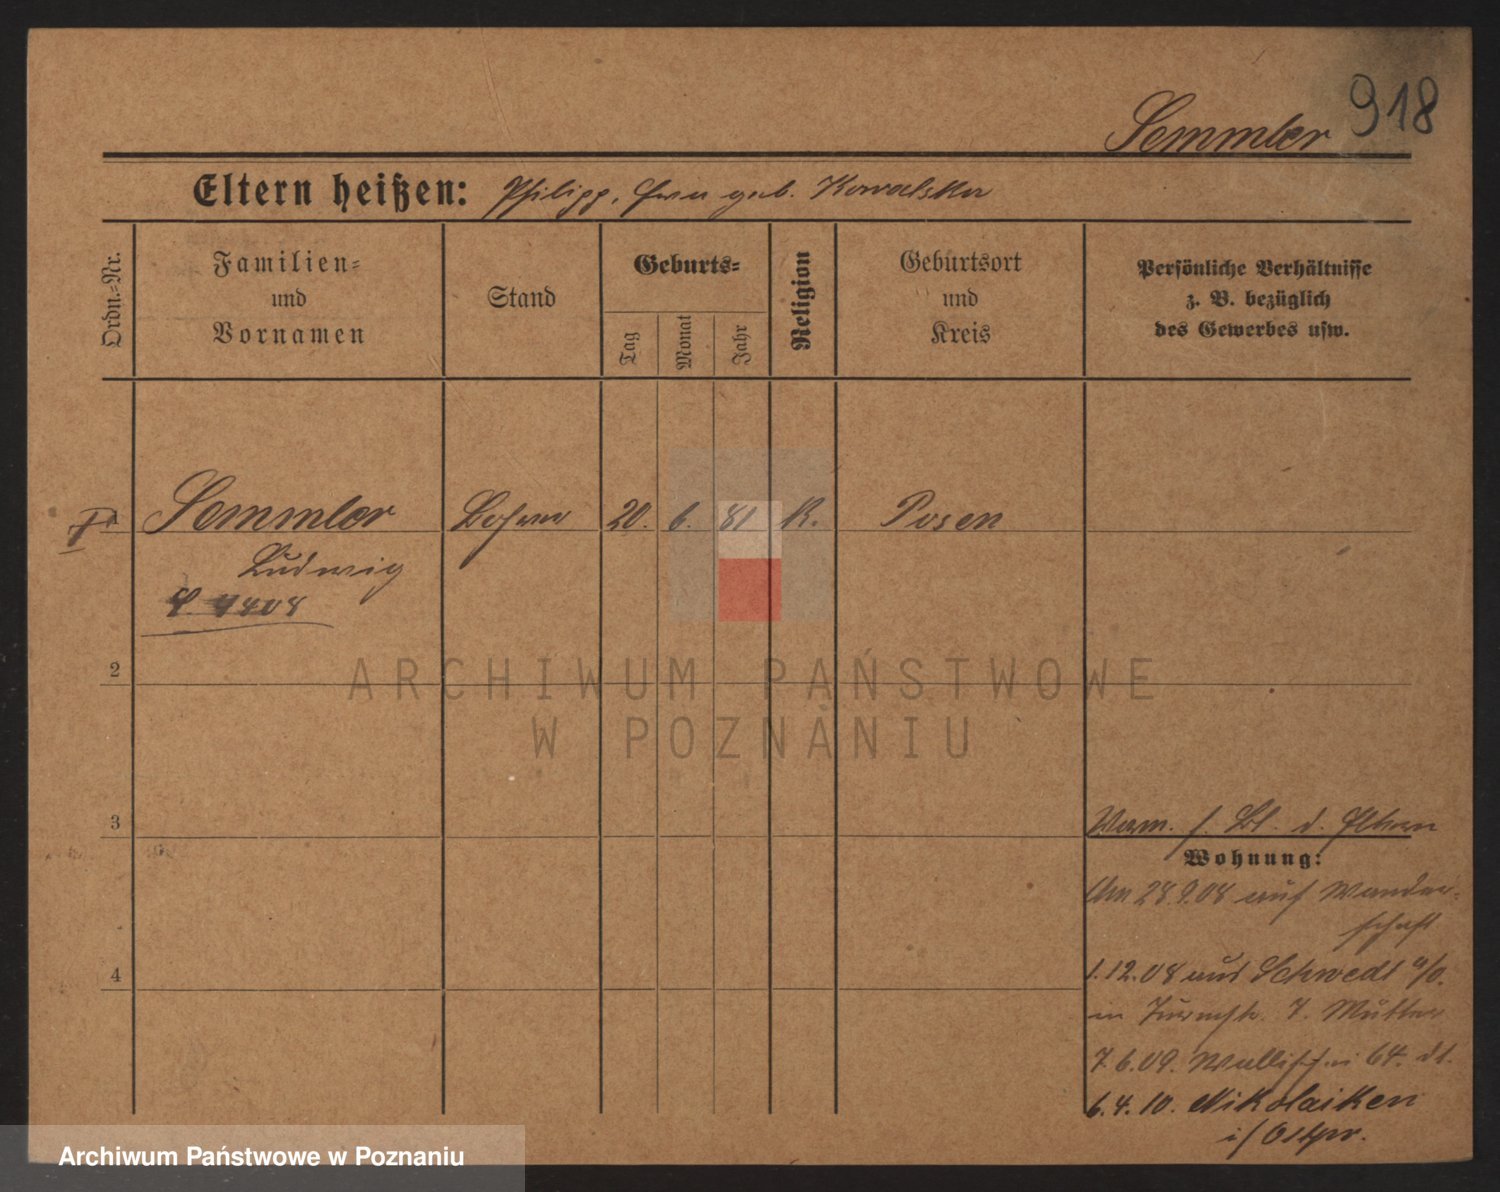 918
Semmler
Eltern heißen: Philipp, Eva geb. Kowalska
Ordn.-Nr.
Familien-
und
Vornamen
Stand
Geburts-
Tag
Monat
Jahr
Religion
Geburtsort
und
Kreis
Persönliche Verhältnisse
z. B. bezüglich
des Gewerbes usw.
Semmler 20. 6. 81 K. Posen
Ludwig
2
3
4
Vorm. s. Bl. d. Eltern
Wohnung:
Am 28.9.08 auf Wander-
schaft
1.12.08 aus Schwedt a/O.
in Turmstr. 7. Mutter
7.6.09. Wallischei 64. dt.
6.4.10. Nikolaiken
i/Ostpr.
ARCHIWUM PAŃSTWOWE
W POZNANIU
Archiwum Państwowe w Poznaniu